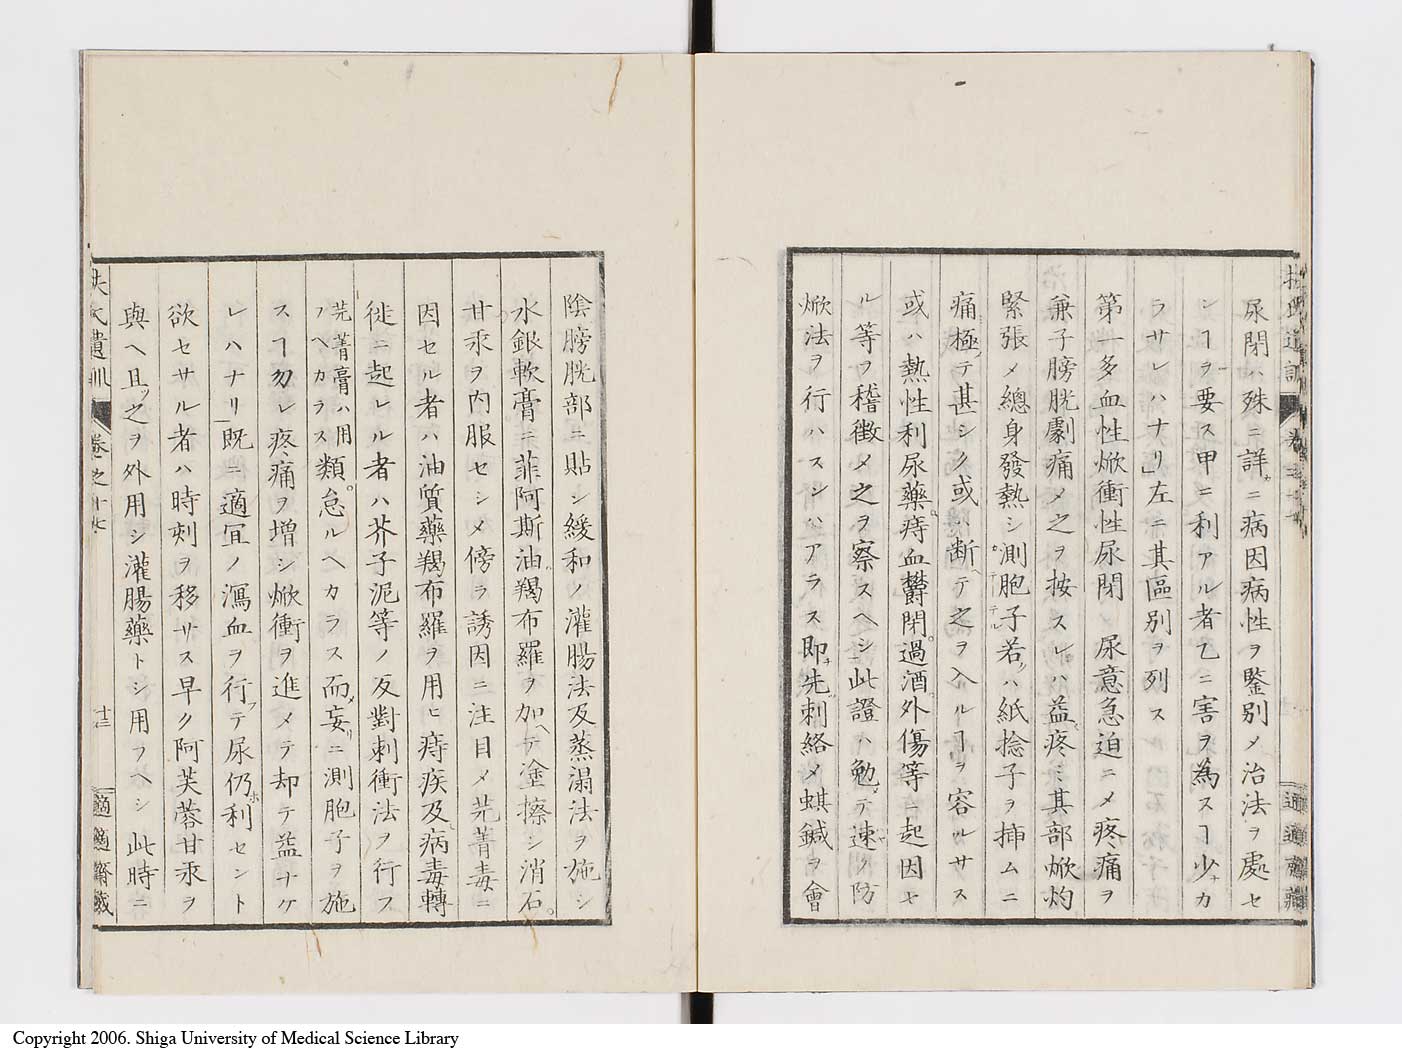 尿閉ハ殊ニ詳カニ病因病性ヲ鑒別メ治法ヲ處セ
シヿヲ要ス甲ニ利アル者乙ニ害ヲ為スヿ少ナカ
ラサレハナリ」左ニ其區別ヲ列ス
第一多血性焮衝性尿閉 尿意急迫ニメ疼痛ヲ
兼子膀胱劇痛メ之ヲ按スレハ益疼ミ其部焮灼
緊張メ總身發熱シ測胞子若ハ紙捻子ヲ挿ムニ
痛極テ甚シク或ハ断テ之ヲ入ルヿヲ容ルサス
或ハ熱性利尿藥。痔血鬱閉。過酒外傷等ニ起因セ
ル等ヲ稽徴メ之ヲ察スヘシ」此證ハ勉テ速ク防
焮法ヲ行ハスンハアラス即先刺絡メ蜞鍼ヲ會
陰膀胱部ニ貼シ緩和ノ灌腸法及蒸溻法ヲ施シ
水銀軟膏ニ菲阿斯油羯布羅ヲ加ヘテ塗擦シ消石。
甘汞ヲ内服セシメ傍ラ誘因ニ注目メ芫菁毒ニ
因セル者ハ油質藥羯布羅ヲ用ヒ痔疾及病毒轉
徙ニ起レル者ハ芥子泥等ノ反對刺衝法ヲ行フ
芫菁膏ハ用
フヘカラス
類。怠ルヘカラス而メ妄リニ測胞子ヲ施
スヿ勿レ疼痛ヲ増シ焮衝ヲ進メテ却テ益ナケ
レハナリ」既ニ適宜ノ瀉血ヲ行フテ尿仍ホ利セント
欲セサル者ハ時刻ヲ移サス早ク阿芙蓉甘汞ヲ
與ヘ且ツ之ヲ外用シ灌腸藥トシ用フヘシ此時ニ
扶氏遺訓
卷之十七
十三
適適齋藏